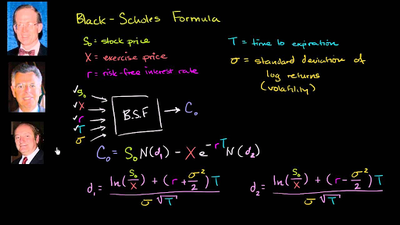 Black-Scholes Formula
S₀ = stock price
X = exercise price
r = risk-free interest rate
T = time to expiration
σ = standard deviation of
log returns
(volatility)
S₀
X
r
T
σ
B.S.F
C₀
C₀ = S₀ N(d₁) - X e^(-rT) N(d₂)
d₁ = (ln(S₀/X) + (r + σ²/2)T) / (σ√T)
d₂ = (ln(S₀/X) + (r - σ²/2)T) / (σ√T)